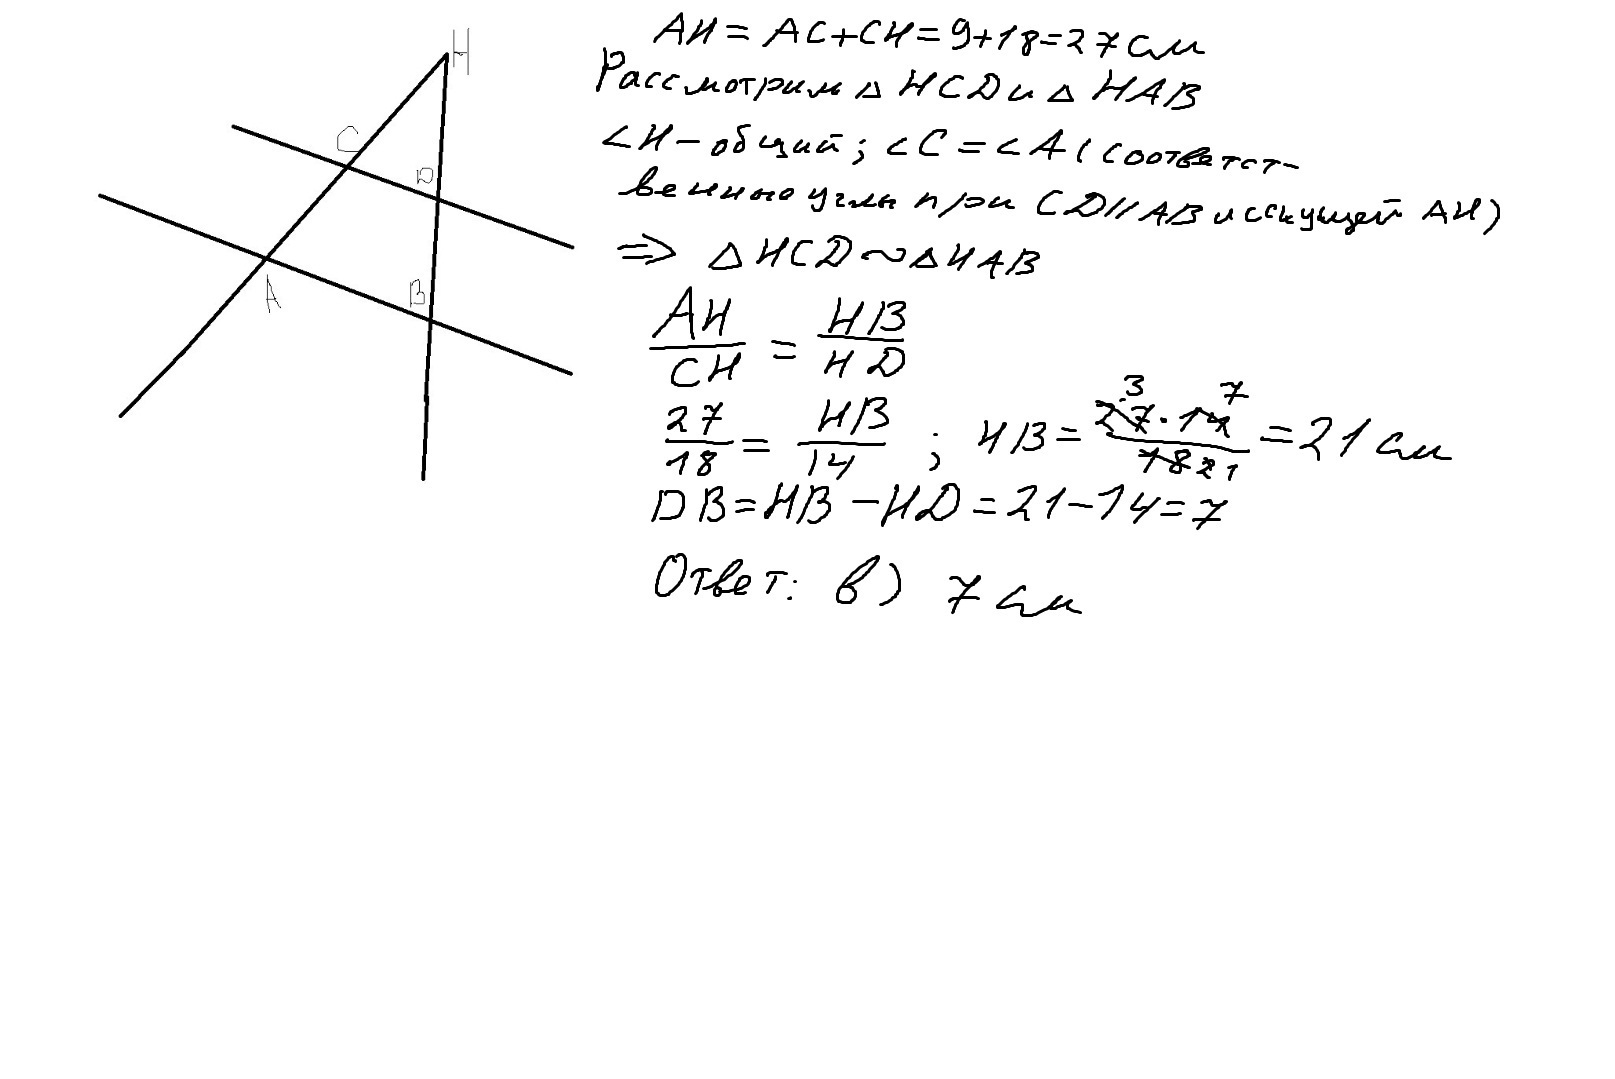 H
C
D
A
B
AH = AC+CH=9+18=27см
Рассмотрим △ HCD и △ HAB
∠H – общий; ∠C = ∠A (соответст-
венные углы при CD||AB и секущей AH)
⇒ △HCD ~ △HAB
AH/CH = HB/HD
27/18 = HB/14 ; HB = 27·14/18 = 21 см
3 7
2 1
DB=HB–HD=21–14=7
Ответ: в) 7 см